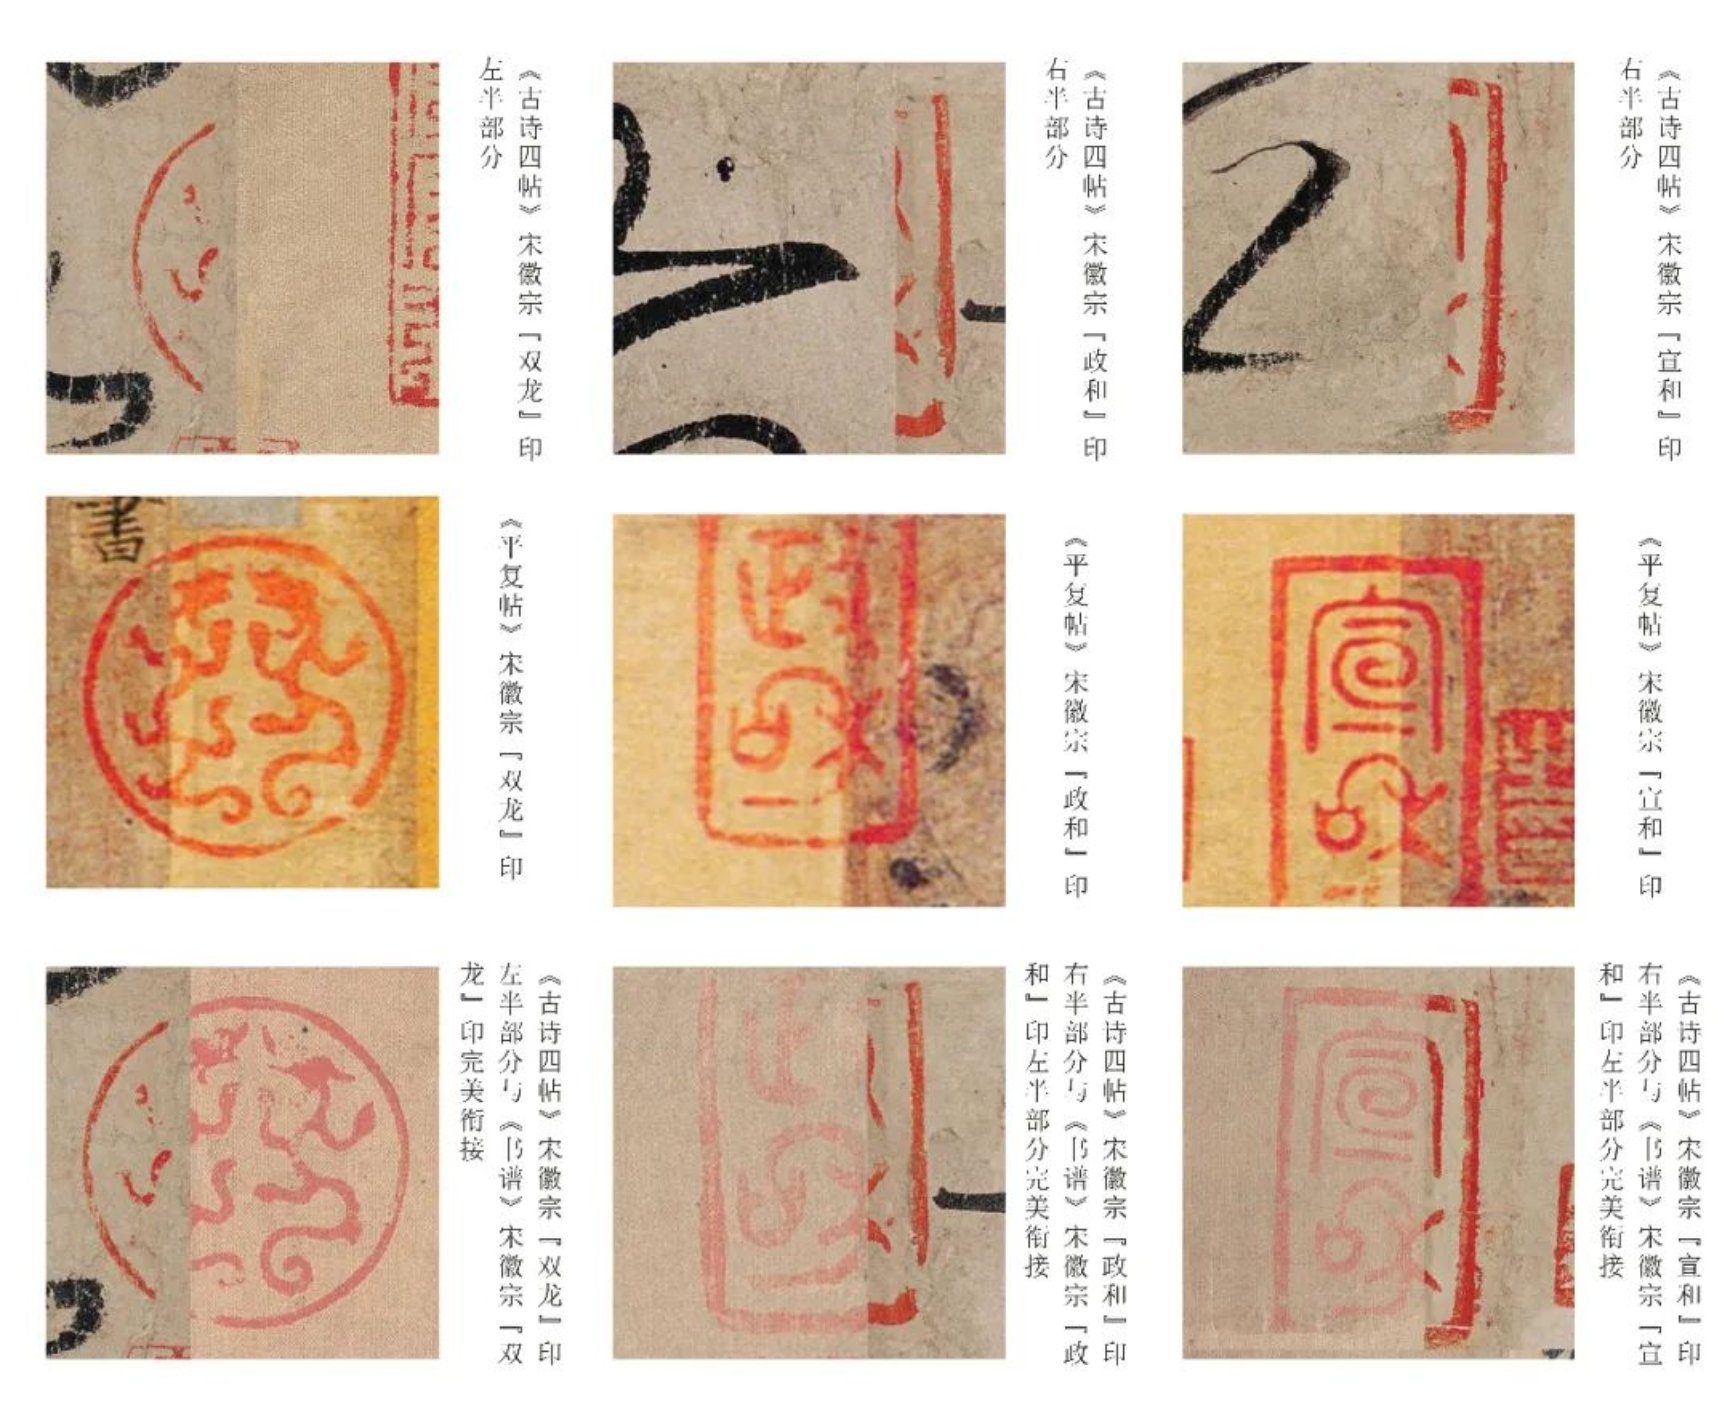 《古诗四帖》宋徽宗『双龙』印
左半部分
《古诗四帖》宋徽宗『政和』印
右半部分
《古诗四帖》宋徽宗『宣和』印
右半部分
書
《平复帖》宋徽宗『双龙』印
政和
《平复帖》宋徽宗『政和』印
宣和
《平复帖》宋徽宗『宣和』印
《古诗四帖》宋徽宗『双龙』印
左半部分与《书谱》宋徽宗『双
龙』印完美衔接
《古诗四帖》宋徽宗『政和』印
右半部分与《书谱》宋徽宗『政
和』印左半部分完美衔接
宣和
《古诗四帖》宋徽宗『宣和』印
右半部分与《书谱》宋徽宗『宣
和』印左半部分完美衔接